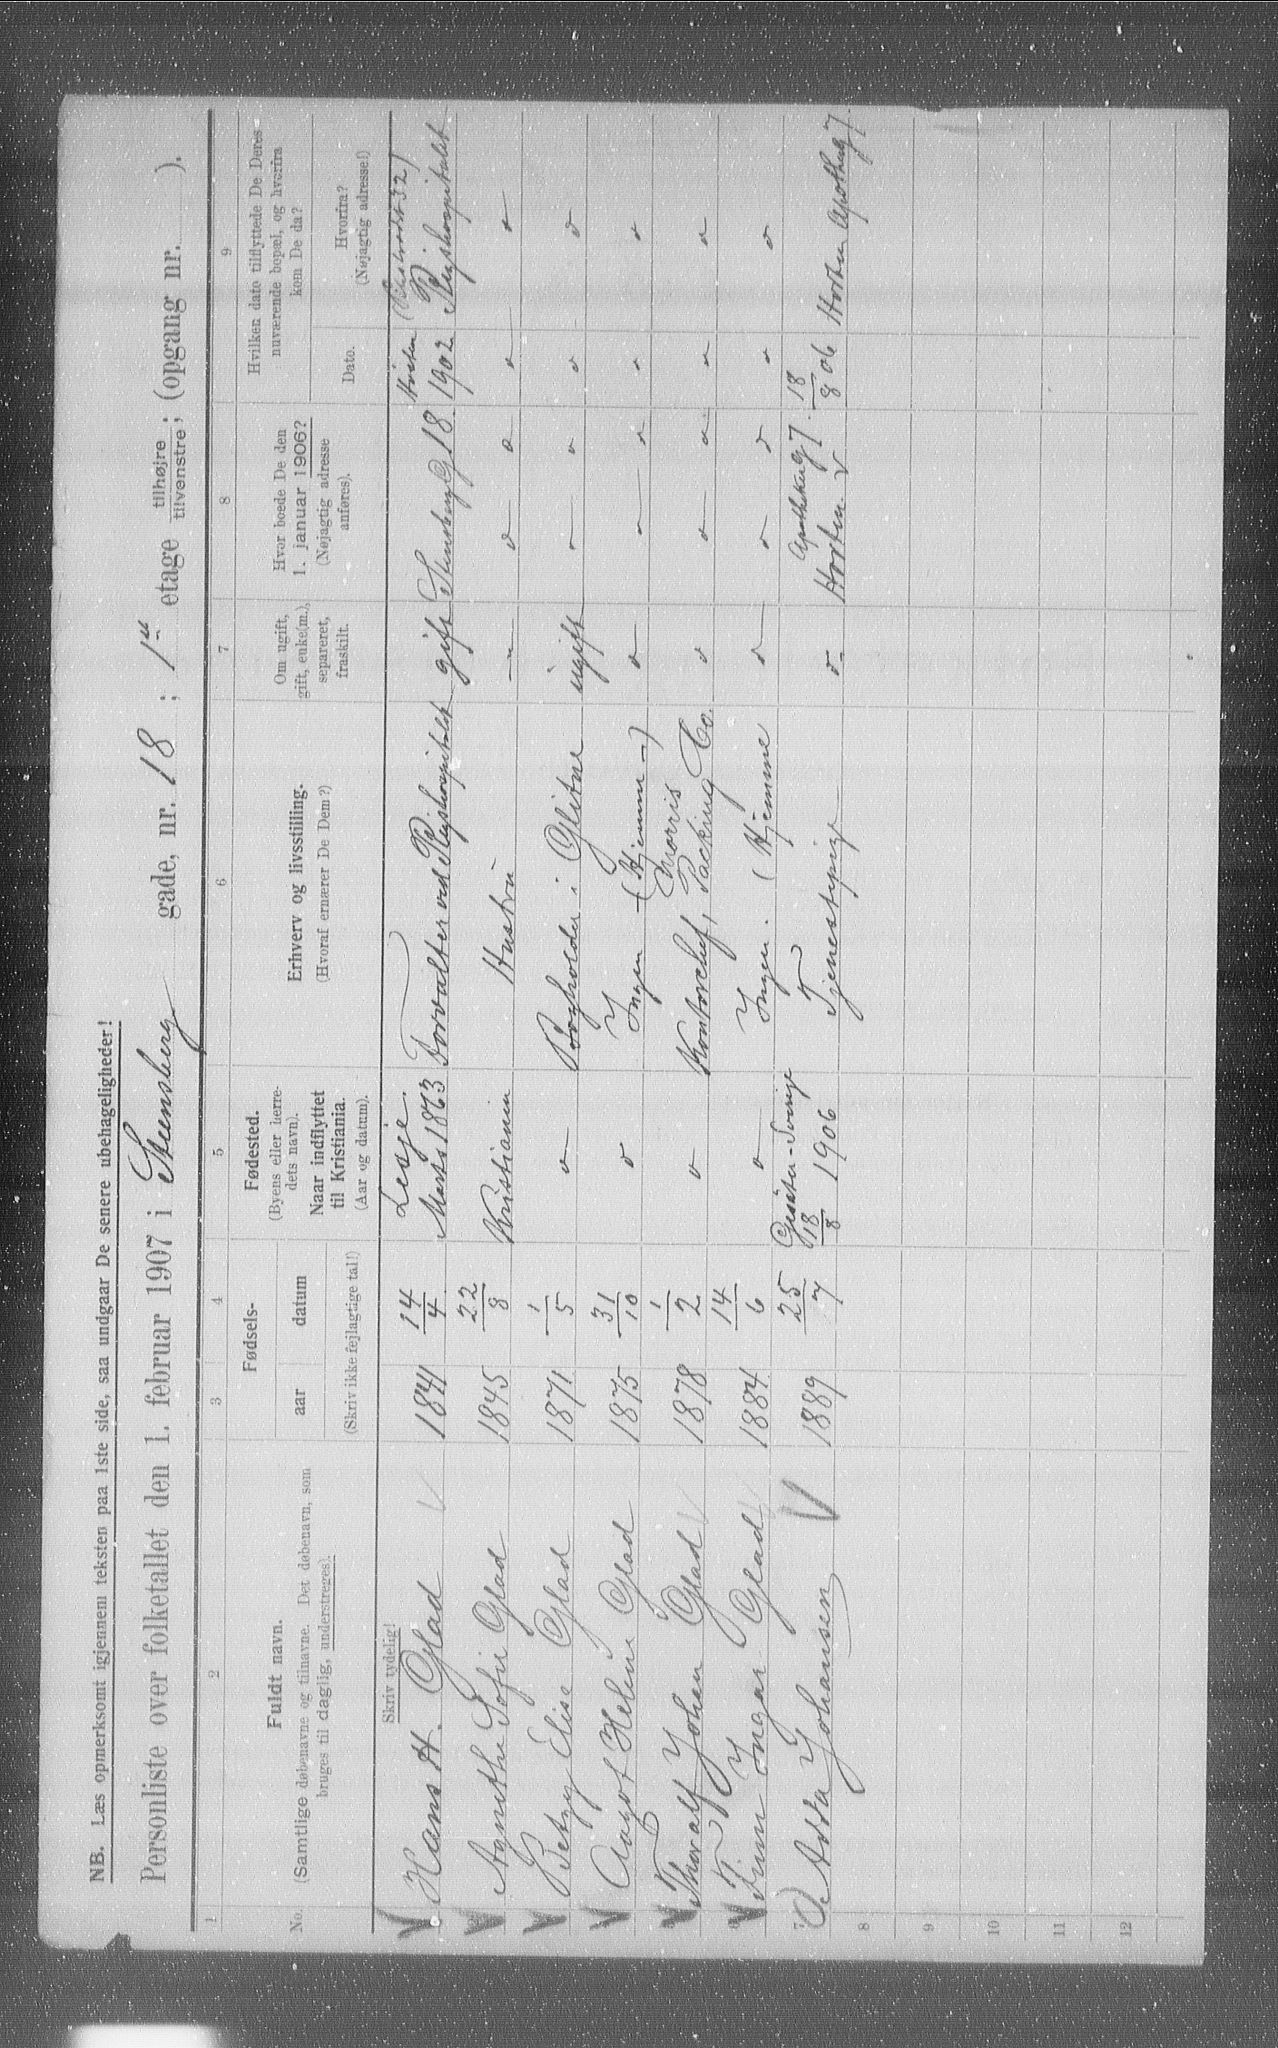 NB. Læs opmerksomt igjennem teksten paa 1ste side, saa undgaar De senere ubehageligheder!
Personliste over folketallet den 1. februar 1907 i Stensberg gade, nr. 18 ; 1ste etage tilhøjre / tilvenstre ; (opgang nr. ).
1 2 3 4 5 6 7 8 9
No.
Fuldt navn.
(Samtlige døbenavne og tilnavne. Det døbenavn, som
bruges til daglig, understreges).
Fødsels-
aar datum
(Skriv ikke fejlagtige tal!)
Fødested.
(Byens eller herre-
dets navn).
Naar indflyttet
til Kristiania.
(Aar og datum).
Erhverv og livsstilling.
(Hvoraf ernærer De Dem?)
Om ugift,
gift, enke(m.),
separeret,
fraskilt.
Hvor boede De den
1. januar 1906?
(Nøjagtig adresse
anføres).
Hvilken dato tilflyttede De Deres
nuværende bopæl, og hvorfra
kom De da?
Dato.
Hvorfra?
(Nøjagtig adresse!)
Skriv tydelig!
Hans H. Glad 1841 14/4 Lesje. Marts 1863 Forvalter ved Rigshospitalet gift Stensbergg 18. 1902 Rigshospitalet
Agnethe Sofie Glad 1845 22/8 Kristiania Hustru " " " " "
Betzy Elise Glad 1871 1/5 " Bogholder i Glitne ugift " " " "
Aagot Helene Glad 1875 31/10 " Ingen (Hjemme) " " " " "
Thoralf Johan Glad 1878 1/2 " Kontorchef, Morris Packing Co. " " " " "
Finn Ingar Glad 1884 14/6 " Ingen. (Hjemme " " " " "
7 Asta Johansen 1889 25/7 Sverige 18/8 1906 Tjenestepige " Apothekg 7. Horten 18/8 06 Horten Apothkg 7.
8
9
10
11
12